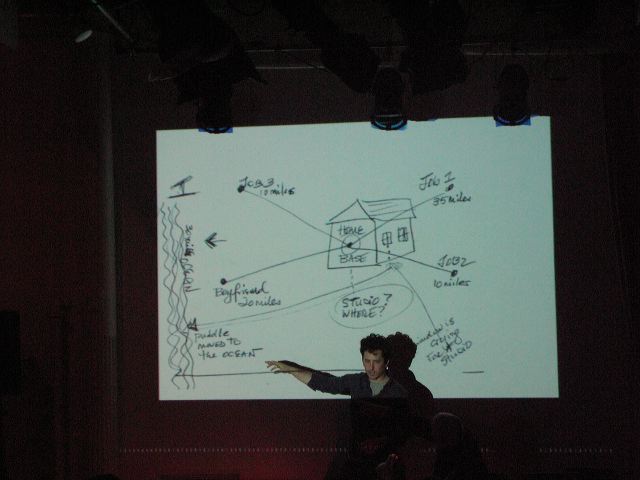 JOB 3
10 miles
JOB 1
35 miles
HOME
BASE
JOB2
10 miles
Boyfriend
20 miles
STUDIO?
WHERE?
puddle
MOVED TO
the OCEAN